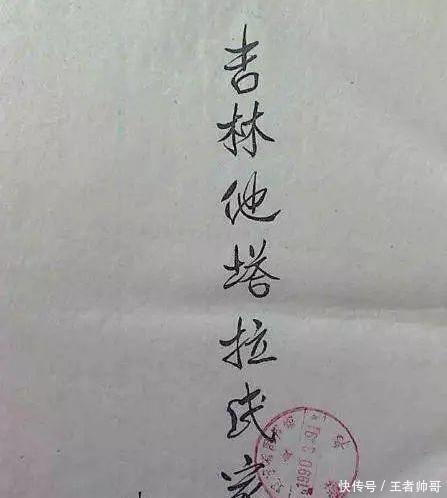 吉林他塔拉氏家
快传号/王者帅哥